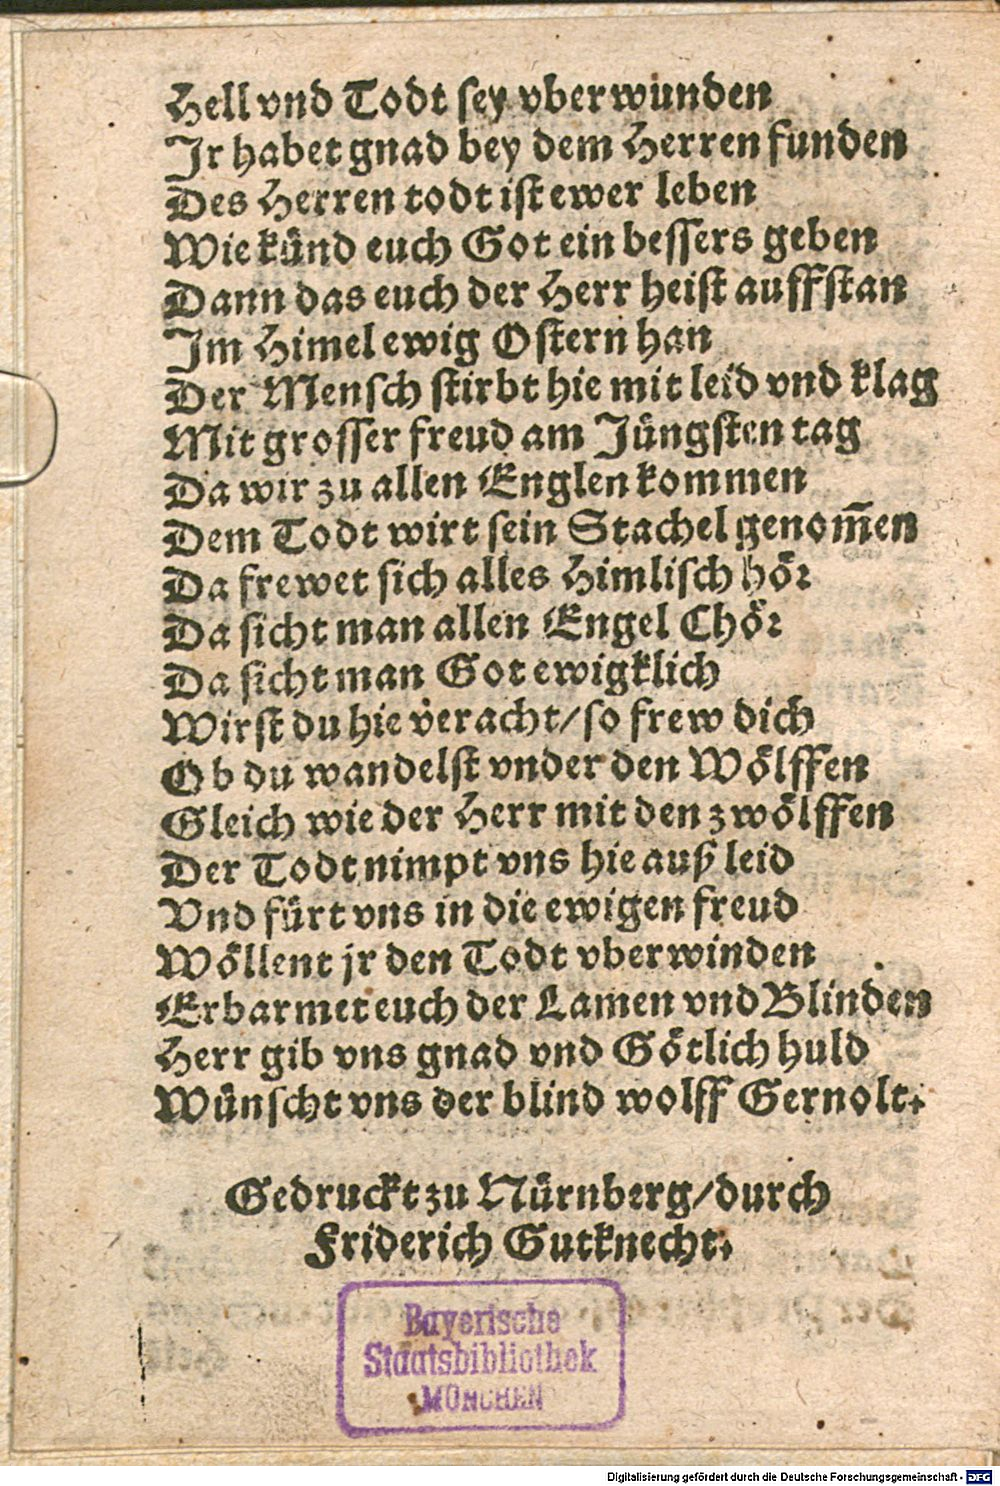 Hell vnd Todt sey vberwunden
Jr habet gnad bey dem Herren funden
Des Herren todt ist ewer leben
Wie kuͤnd euch Got ein bessers geben
Dann das euch der Herr heist auffstan
Jm Himel ewig Ostern han
Der Mensch stirbt hie mit leid vnd klag
Mit grosser freud am Juͤngsten tag
Da wir zu allen Englen kommen
Dem Todt wirt sein Stachel genom̃en
Da frewet sich alles Himlisch hoͤr
Da sicht man allen Engel Choͤr
Da sicht man Got ewigklich
Wirst du hie veracht/so frew dich
Ob du wandelst vnder den Woͤlffen
Gleich wie der Herr mit den zwoͤlffen
Der Todt nimpt vns hie auß leid
Vnd fuͤrt vns in die ewigen freud
Woͤllent jr den Todt vberwinden
Erbarmet euch der Lamen vnd Blinden
Herr gib vns gnad vnd Goͤtlich huld
Wuͤnscht vns der blind wolff Gernolt.
Gedruckt zu Nuͤrnberg/durch
Friderich Gutknecht.
Bayerische
Staatsbibliothek
MÜNCHEN
Digitalisierung gefördert durch die Deutsche Forschungsgemeinschaft - DFG